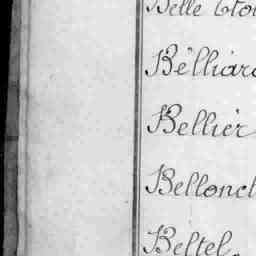 Belle Eto
Bélliard
Bellier
Bellonch
Beltel.